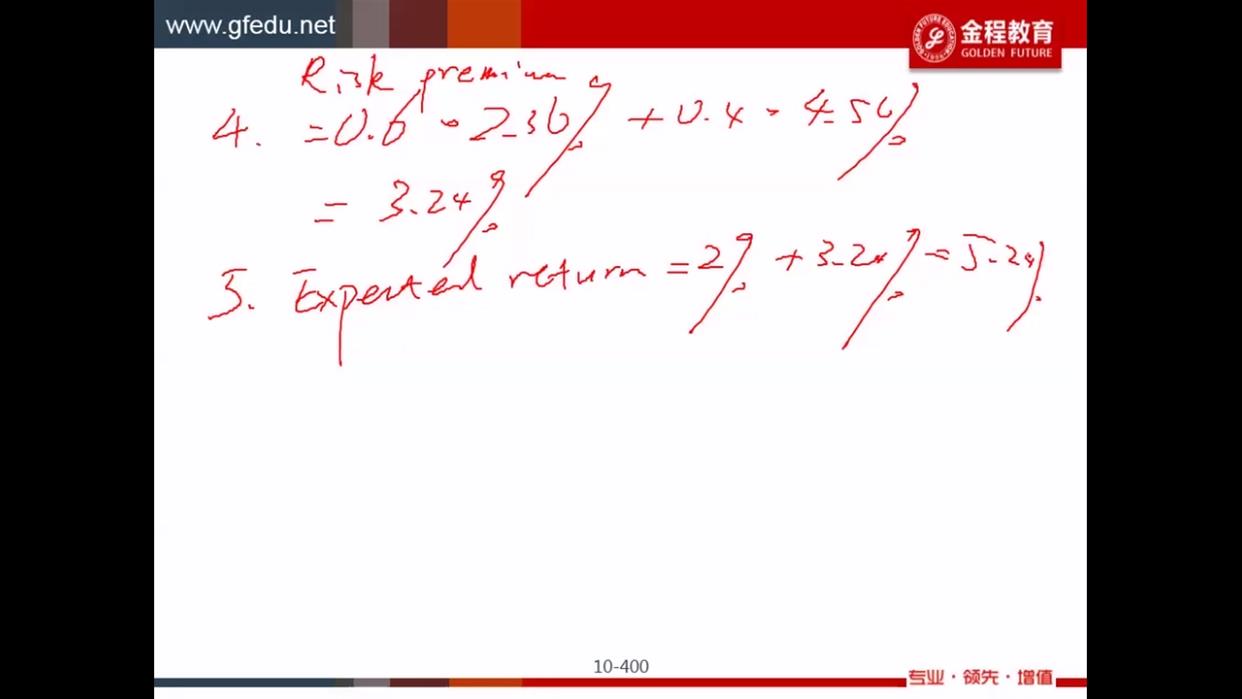 www.gfedu.net
金程教育
GOLDEN FUTURE
Risk premium
4. =0.6 · 2.36% + 0.4 · 4.56%
= 3.24%
5. Expected return = 2% + 3.24% = 5.24%
10-400
专业·领先·增值